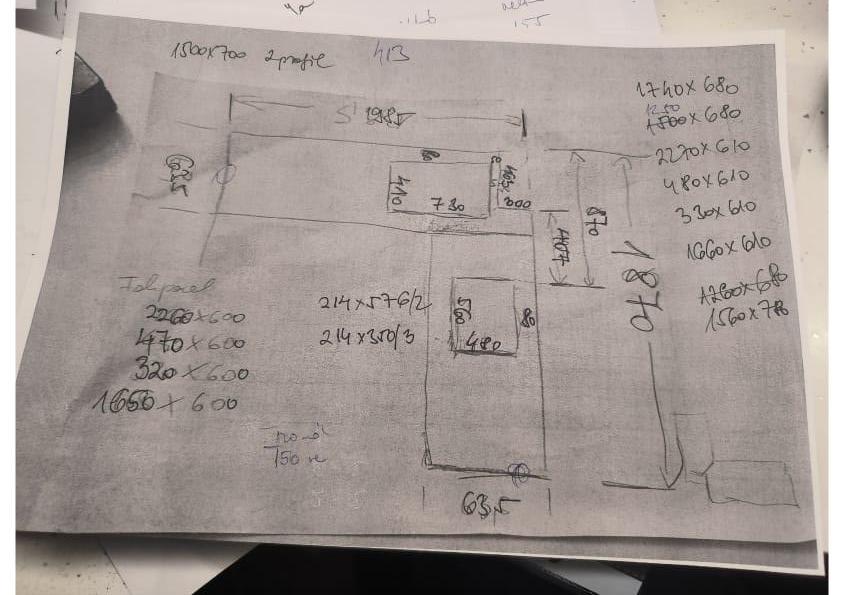 1500x700 2 profil 413
1740x680
1250
1500x680
2270x610
480x610
330x610
1660x610
1260x680
1560x780
1985
635
80
410
730
200
407
870
1870
Falpanel
2260x600
470x600
320x600
1650x600
214x576/2
214x350/3
595
80
480
150
63,5
155